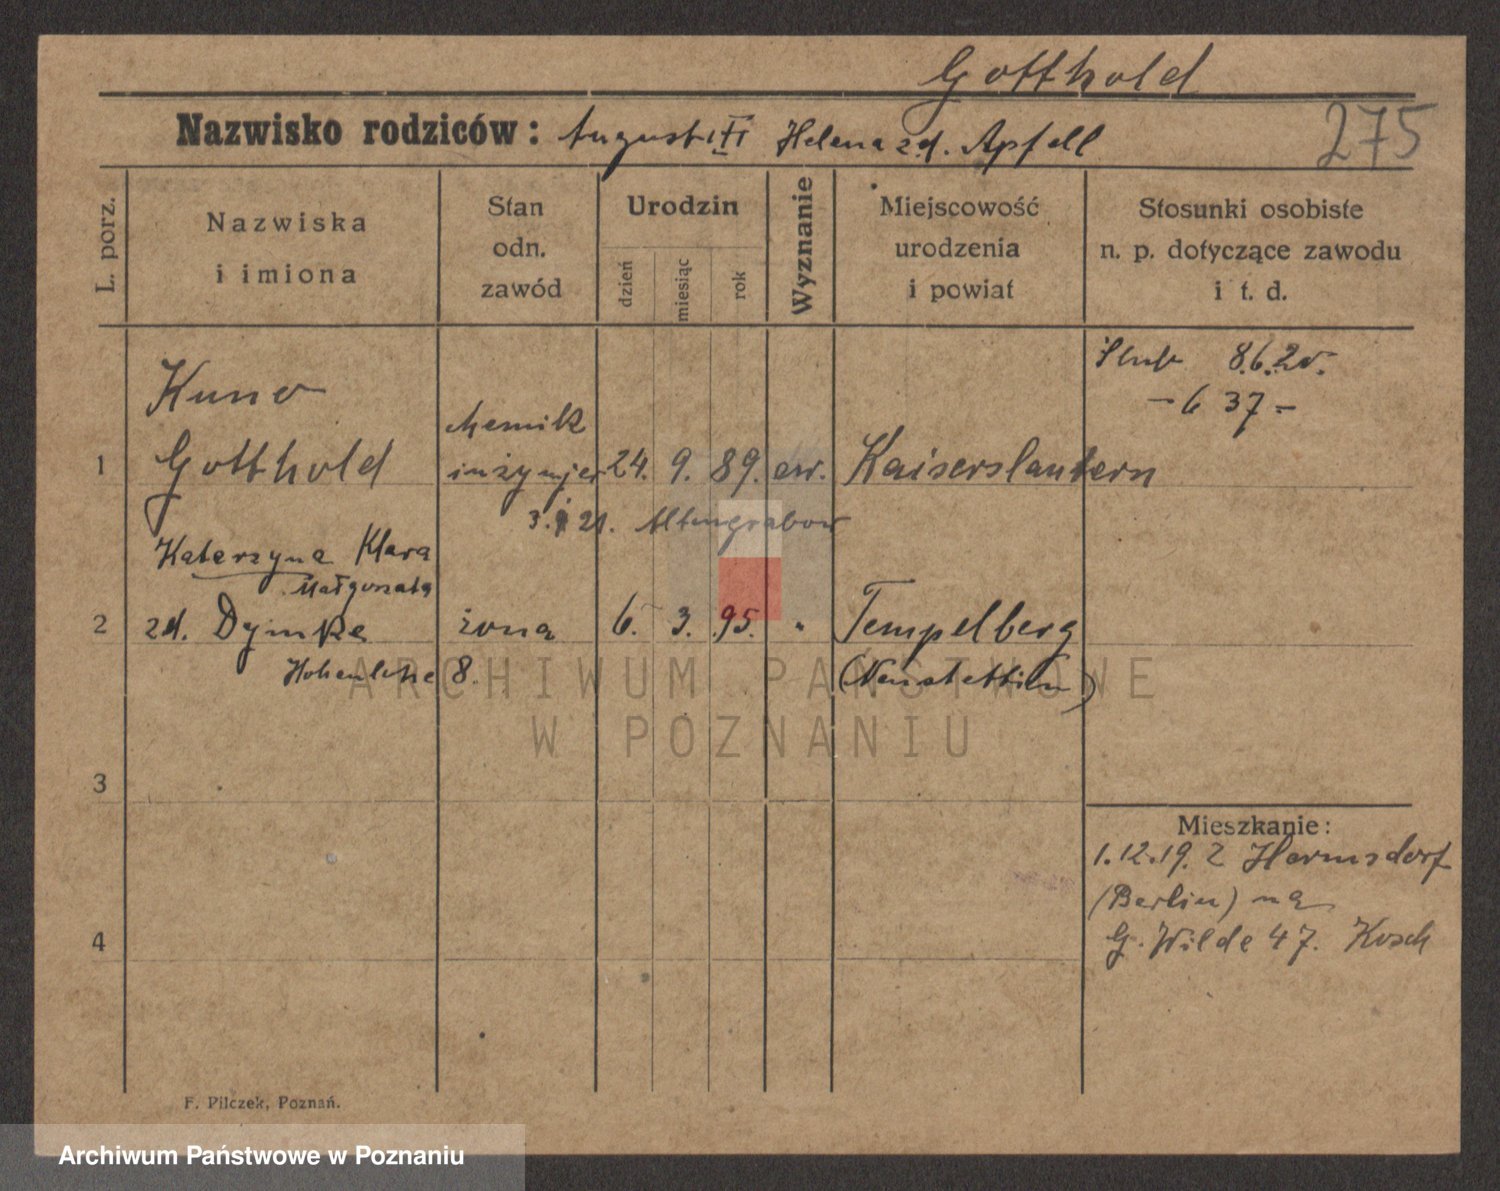 Gotthold
Nazwisko rodziców: August i Helena zd. Apfell
275
L. porz.
Nazwiska
i imiona
Stan
odn.
zawód
Urodzin
dzień
miesiąc
rok
Wyznanie
Miejscowość
urodzenia
i powiat
Stosunki osobiste
n. p. dotyczące zawodu
i t. d.
Ślub 8.6.20.
- 6 37 -
Kuno
1 Gotthold
chemik
inżynjer 24. 9. 89. ew. Kaiserslautern
3. 21. Altengrabow
Katarzyna Klara
Małgorzata
2 zd. Dymke żona 6. 3. 95. " Tempelberg
8. (Neustettin)
3
4
Mieszkanie:
1.12.19. z Hermsdorf
(Berlin) na
G. Wilde 47. Kosch
F. Pilczek, Poznań.
ARCHIWUM PAŃSTWOWE
W POZNANIU
Archiwum Państwowe w Poznaniu